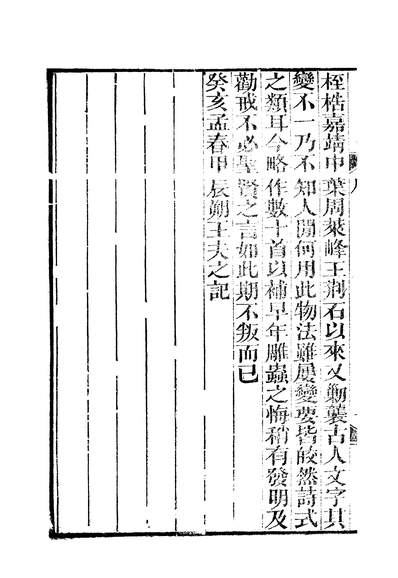 桎梏嘉靖中葉周萊峰王荆石以來又勦襲古人文字其
變不一乃不知人間何用此物法雖屢變要皆皎然詩式
之類耳今略作數十首以補早年雕蟲之悔稍有發明及
勸戒不必聖賢之言如此期不叛而已
癸亥孟春甲辰朔王夫之記